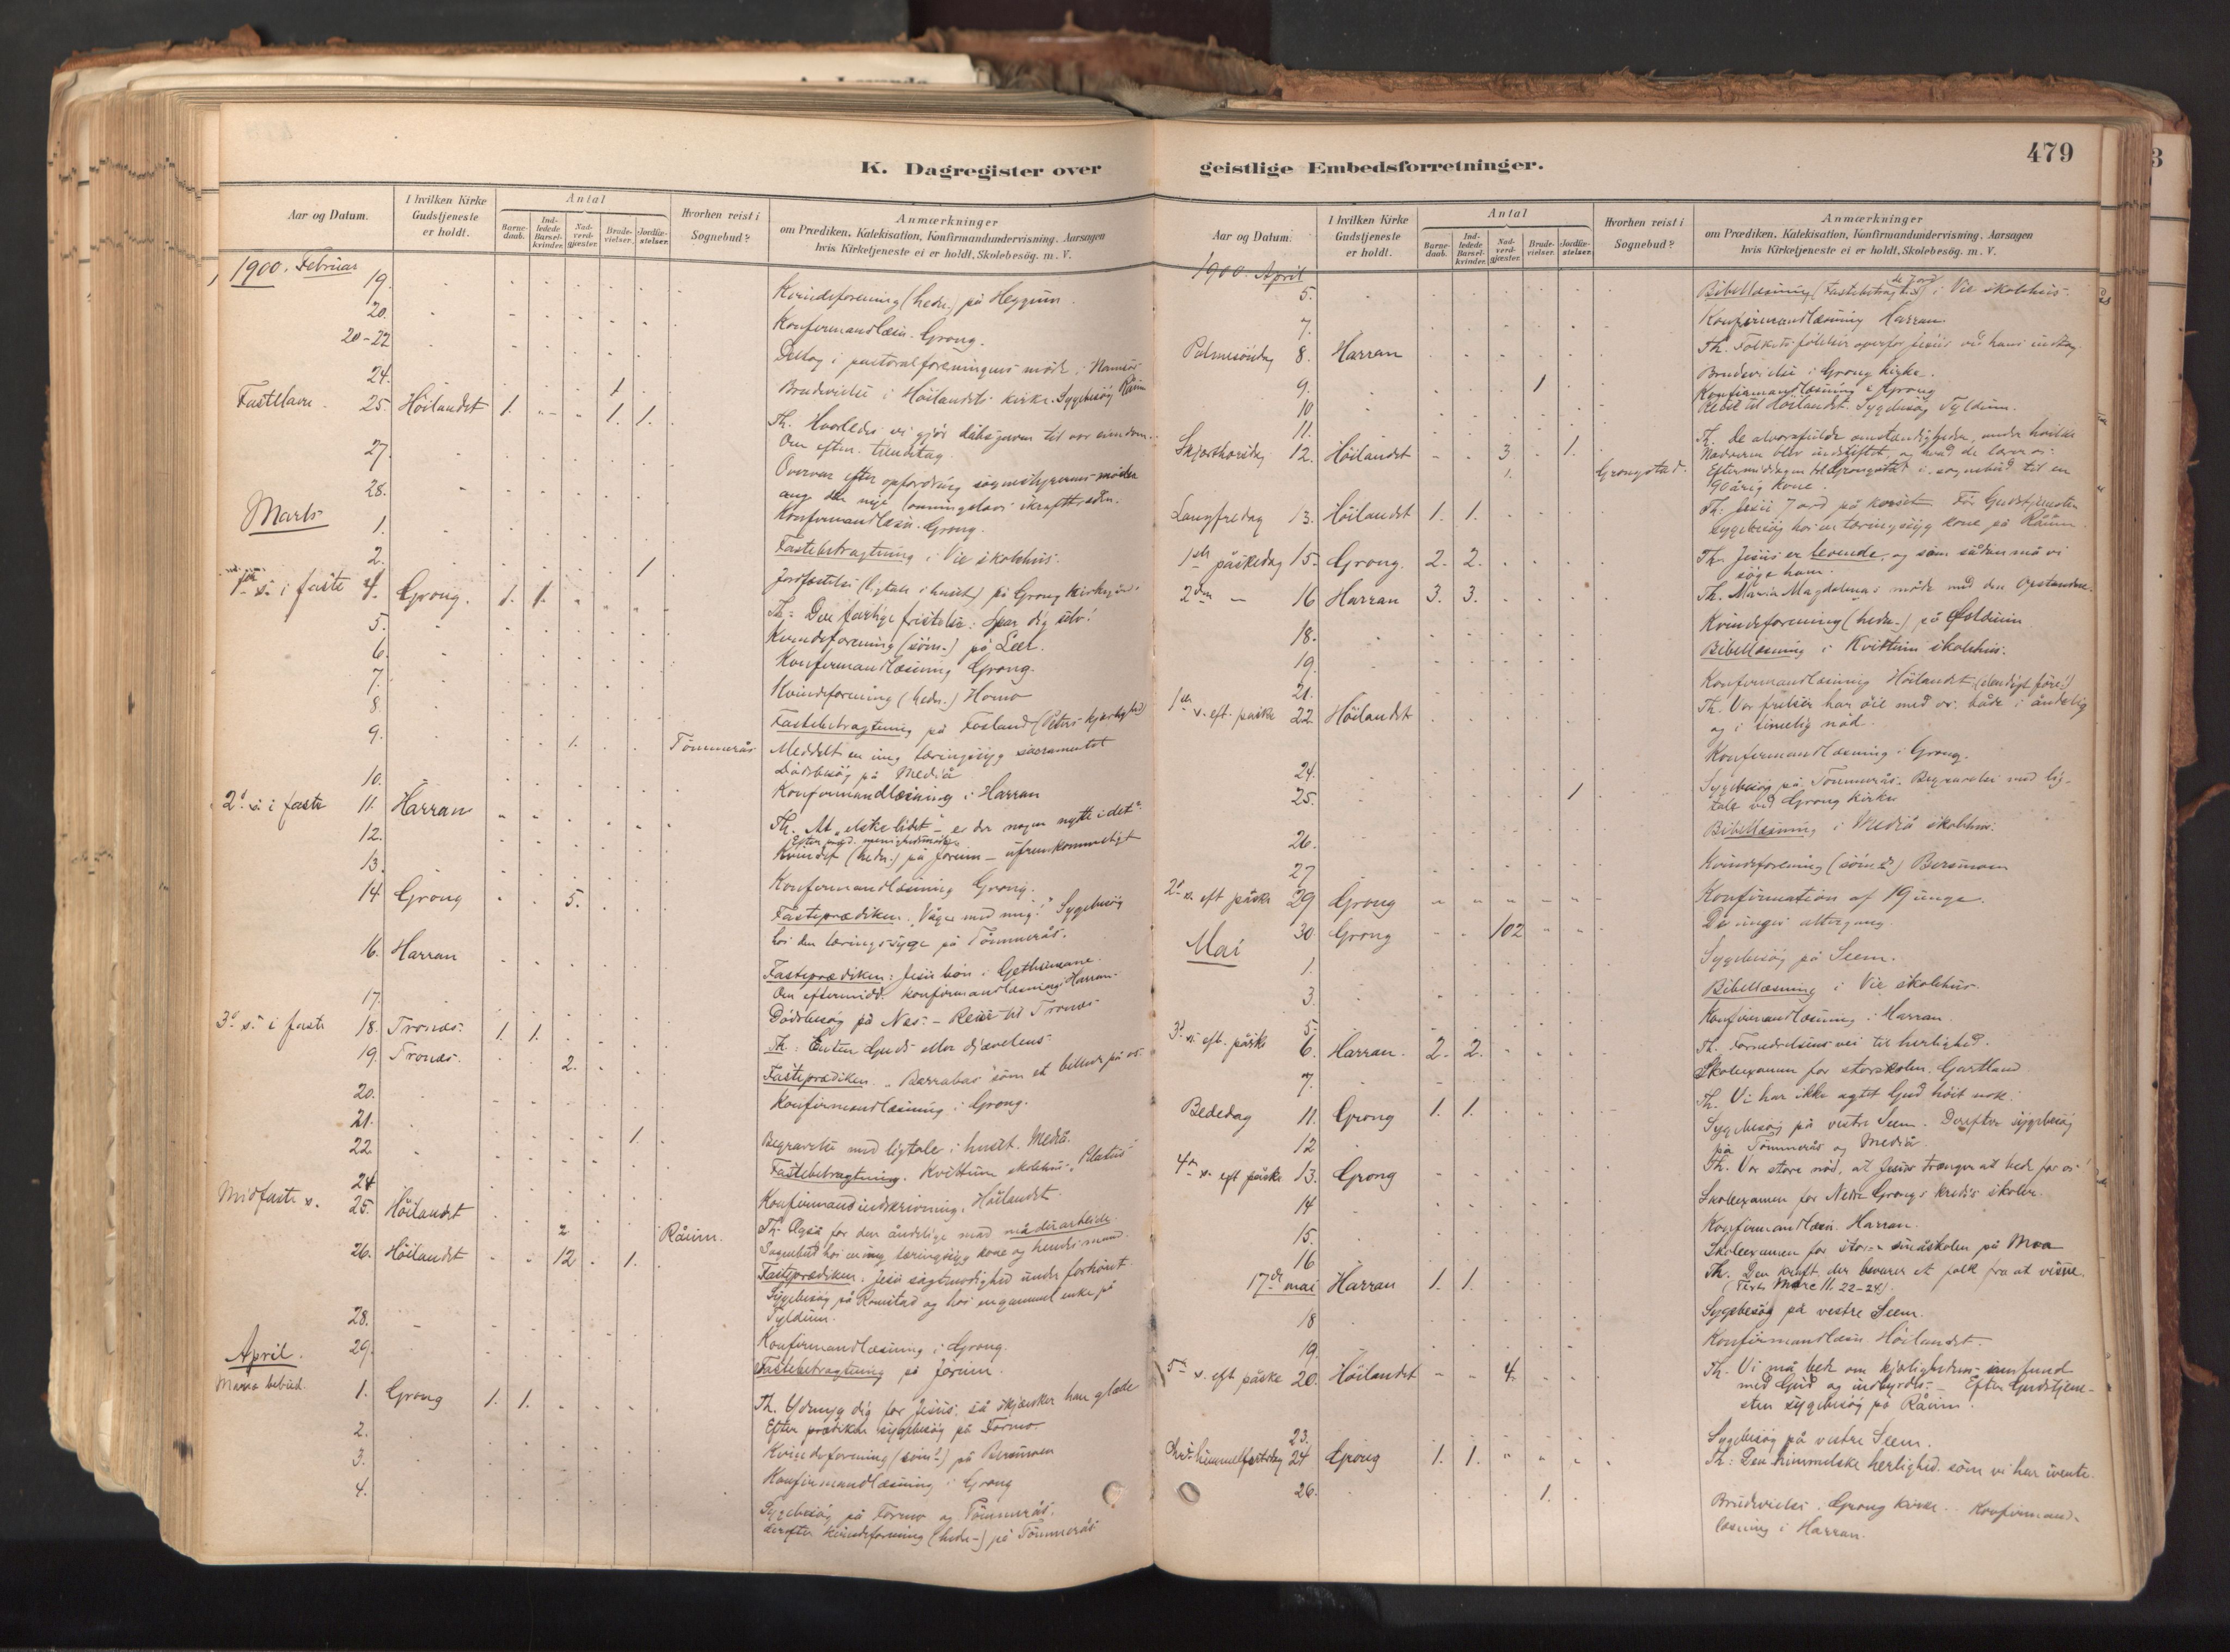 K. Dagregister over
Aar og Datum.
I hvilken Kirke Gudstjeneste er holdt.
Antal
Barne-daab.
Ind-ledede Barsel-kvinder.
Nad-verd-gjæster.
Brude-vielser.
Jordfæs-stelser.
Hvorhen reist i Sognebud?
Anmærkninger
om Prædiken, Katekisation, Konfirmandundervisning, Aarsagen
hvis Kirketjeneste ei er holdt, Skolebesög. m. V.
1900. Februar
19. Kvindeforening (hedn.) på Heggum.
20. Konfirmandlæsn. Grong.
20-22 Deltog i pastoralforeningens möde i Namsos
24. 1. Brudevielse i Höilandets kirke. Sygebesög Råum
Fastelavn. 25. Höilandet 1. 1. 1. Th. Hvorledes vi gjör dåbsgaven til vor eiendom.
Om efterm.
27. Overvar efter opfordring
28. Konfirmandlæsn. Grong.
Marts
1. Fastebetragtning i Vie skolehus.
2. 1 på Grong kirkegård.
1ste s. i faste 4. Grong. 1. 1. Th: Den farlige fristelse: Spar dig selv!
5. Kvindeforening (sömf.) på
6. Konfirmandlæsning Grong.
7. Kvindeforening (hedn.) Homo
8. Fastebetragtning på Fosland (Peters kjærlighed)
9. 1. Tömmerås Meddelt en ung tæringssyg sacramentet
Dödsbesög på Mediå
10. Konfirmandlæsning i Harran
2d s. i faste 11. Harran Th. At "elske lidet" - er der nogen nytte i det?
12. Kvindef (hedn.) på Jörum - ufremkommeligt
13. Konfirmandlæsning Grong.
14 Grong 5. Fasteprædiken. "Våger med mig!" Sygebesög
hos den tæringssyge på Tömmerås.
16. Harran Fasteprædiken: Jesu bön i Gethsemane.
Om eftermidd. konfirmandlæsning i Harran.
17. Dödsbesög på Nes. - Reise til Tronæs
3d s. i faste 18. Tronæs. 1. 1. Th: Enten Guds eller djævelens
19. Tronæs. 2. Fasteprædiken. "Barrabas" som et billede på os.
20. Konfirmandlæsning i Grong.
21. 1. Begravelse med ligtale i huset. Mediå.
22. Fastebetragtning. Kvittum skolehus. "Pilatus"
24 Konfirmandindskrivning. Höilandet.
Midfaste s. 25. Höilandet 2 Råum. Th. Også for den åndelige mad må der arbeides.
Sognebud hos en ung tæringssyg kone og hendes mand.
26. Höilandet 12 1. Fasteprædiken. Jesu sagtmodighed under forhöret.
Sygebesög på Romstad og hos en gammel enke på
Tyldum.
28. Konfirmandlæsning i Grong.
29. Fastebetragtning på Jörum.
April.
Maria bebud. 1. Grong 1. 1. Th. Ydmyg dig for Jesus, så skjænker han glæde
Efter prædiken sygebesög på Formo.
2. Kvindeforening (sömf.) på Bersmoen
3. Konfirmandlæsning i Grong
4. Sygebesög på Formo og Tömmerås.
derefter kvindeforening (hedn.) på Tömmerås
geistlige Embedsforretninger.
479
Aar og Datum.
I hvilken Kirke Gudstjeneste er holdt.
Antal
Barne-daab.
Ind-ledede Barsel-kvinder.
Nad-verd-gjæster.
Brude-vielser.
Jordfæs-stelser.
Hvorhen reist i Sognebud?
Anmærkninger
om Prædiken, Katekisation, Konfirmandundervisning, Aarsagen
hvis Kirketjeneste ei er holdt, Skolebesög. m. V.
1900. April
5. Bibellæsning (Fastebetragtn. de 7 ord) i Vie skolehus.
7. Konfirmandlæsning Harran
Palmesöndag 8. Harran Th. Folkets fölelser overfor Jesus ved hans indtog.
9. 1 Brudevielse i Grong kirke.
Konfirmandlæsning i Grong
10 Reise til Höilandet. Sygebesög Tyldum.
11.
Skjærthorsdag 12. Höilandet 3. 1. Th. De alvorsfulde omstændigheder, under hvilke
Nadveren blev indstiftet, og hvad de lærer os.
1. Grongstad. Eftermiddagen til Grongstad i sognebud til en
90 årig kone.
Langfredag 13. Höilandet 1. 1. Th. Jesu 7 ord på korset. För Gudstjenesten
sygebesög hos en tæringssyg kone på Råum.
1ste påskedag 15. Grong. 2. 2. Th. Jesus er levende, og som sådan må vi
söge ham.
2den - 16 Harran 3. 3. Th. Maria Magdalenas möde med den Opstandne.
18. Kvindeforening (hedn.) på
19. Bibellæsning i Kvittum skolehus.
21. Konfirmandlæsning Höilandet. (elendigt före!)
1ste s. eft. påske 22. Höilandet Th. Vor frelser har öie med os både i åndelig
og i timelig nöd.
24. Konfirmandlæsning i Grong.
25. 1 Sygebesög på Tömmerås. Begravelse med lig-
tale ved Grong kirke
26. Bibellæsning i Mediå skolehus.
27 Kvindeforening (sömf.) Bersmoen
2d s. eft påske 29 Grong Konfirmation af 19 unge.
30. Grong 102 De unges altergang.
Mai
1. Sygebesög på Seem.
3. Bibellæsning i Vie skolehus.
5. Konfirmandlæsning i Harran.
3d s. eft. påske 6. Harran. 2. 2. Th. Fornedrelsens vei til herlighed.
7. Skoleexamen for storskolen. Gartland
Bededag 11. Grong 1. 1. Th. Vi har ikke agtet Gud höit nok.
12 Sygebesög på vestre Seem. Derefter sygebesög
på Tömmerås og Mediå.
4de s. eft påske 13. Grong Th. Vor store nöd, at Jesus trænger at bede for os!
14 Skoleexamen for Nedre Grongs kreds's skoler.
15. Konfirmandlæsn. Harran.
16 Skoleexamen for stor- og småskolen på Moa
17de mai Harran 1. 1. Th. Den kraft, der bevarer et folk fra at visne.
(Text: Marc 11. 22-24).
18 Sygebesög på vestre Seem.
19. Konfirmandlæsn. Höilandet.
5te s. eft påske 20. Höilandet 4. Th. Vi må bede om kjærlighedens samfund
med Gud og indbyrdes. - Efter Gudstjene-
sten sygebesög på Råum.
23. Sygebesög på vestre Seem.
Kristi himmelfartsdag 24 Grong 1. 1. Th: Den himmelske herlighed som vi har ivente.
26. 1. Brudevielse. Grong kirke. Konfirmand-
læsning i Harran.